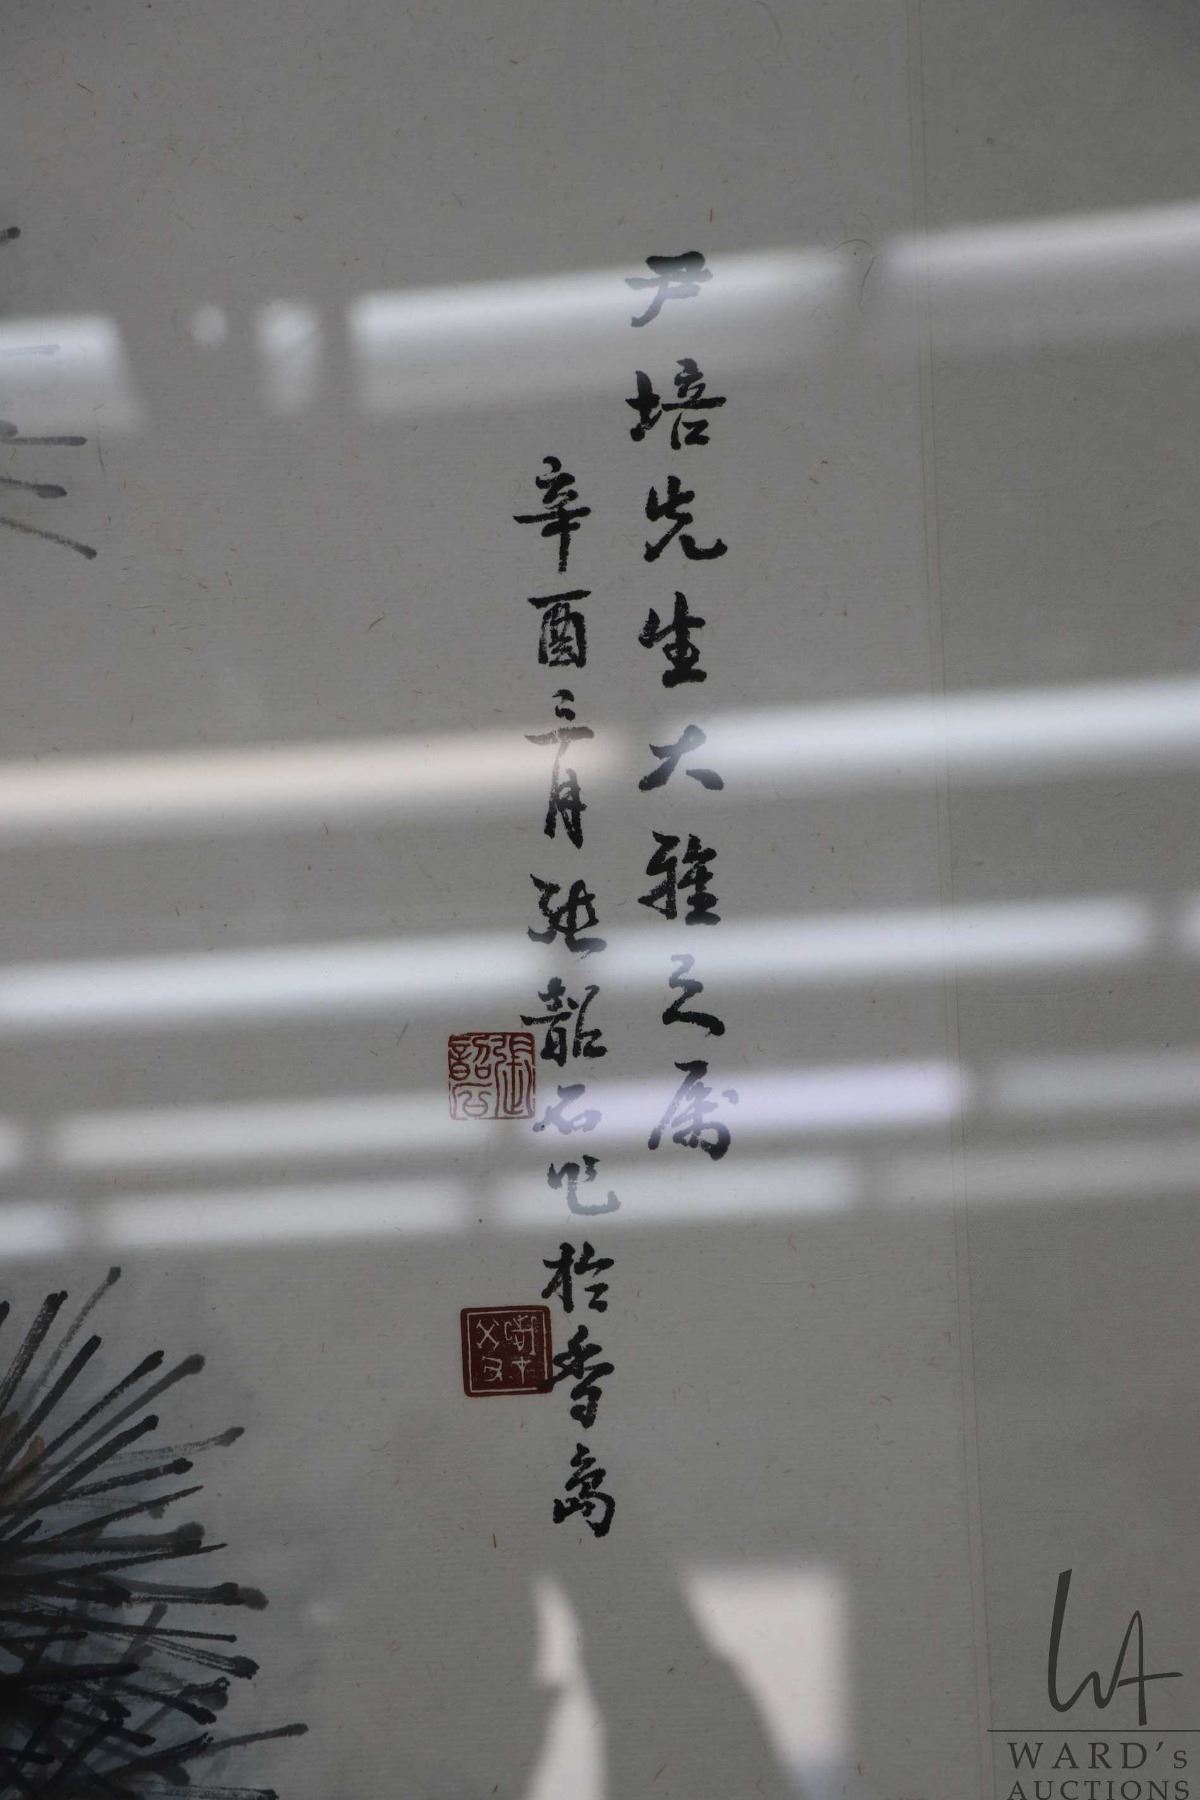 尹培先生大雅之属
辛酉三月张韶石作於香岛
張韶石
WARD's
AUCTIONS